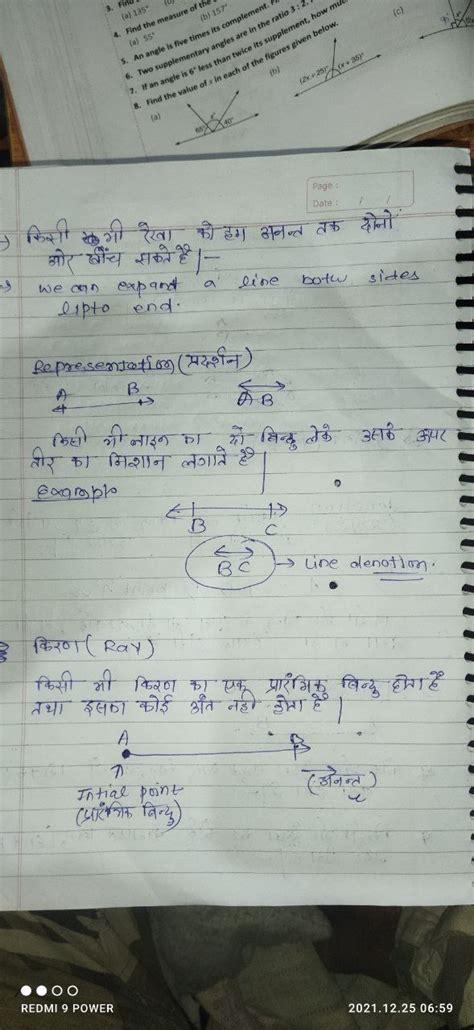 3. Find
(a) 135°
4. Find the measure of the
(a) 55°
(b) 157°
5. An angle is five times its complement. Fi
6. Two supplementary angles are in the ratio 3 : 2.
7. If an angle is 6° less than twice its supplement, how muc
8. Find the value of x in each of the figures given below.
(a)
65°
x°
40°
(b)
(2x + 25)°
(x + 35)°
(c)
Page :
Date : / /
किसी भी रेखा को हम अनन्त तक दोनों
ओर खींच सकते है।
we can expand a line both sides
upto end.
Representation (प्रदर्शन)
A B
AB
किसी भी लाइन का दो बिन्दु लेके उसके ऊपर
तीर का निशान लगाते है।
Example
B C
BC → Line denotion.
किरण (Ray)
किसी भी किरण का एक प्रारंभिक बिन्दु होता है
तथा इसका कोई अंत नही होता है।
A B
Initial point
(प्रारंभिक बिन्दु)
(अनन्त)
REDMI 9 POWER
2021.12.25 06:59